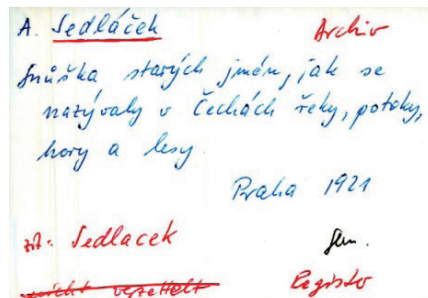 A. Sedláček Archiv
Snůška starých jmén, jak se
nazývaly v Čechách řeky, potoky,
hory a lesy.
Praha 1921
zit.: Sedlacek Gem.
nicht verzettelt Registo